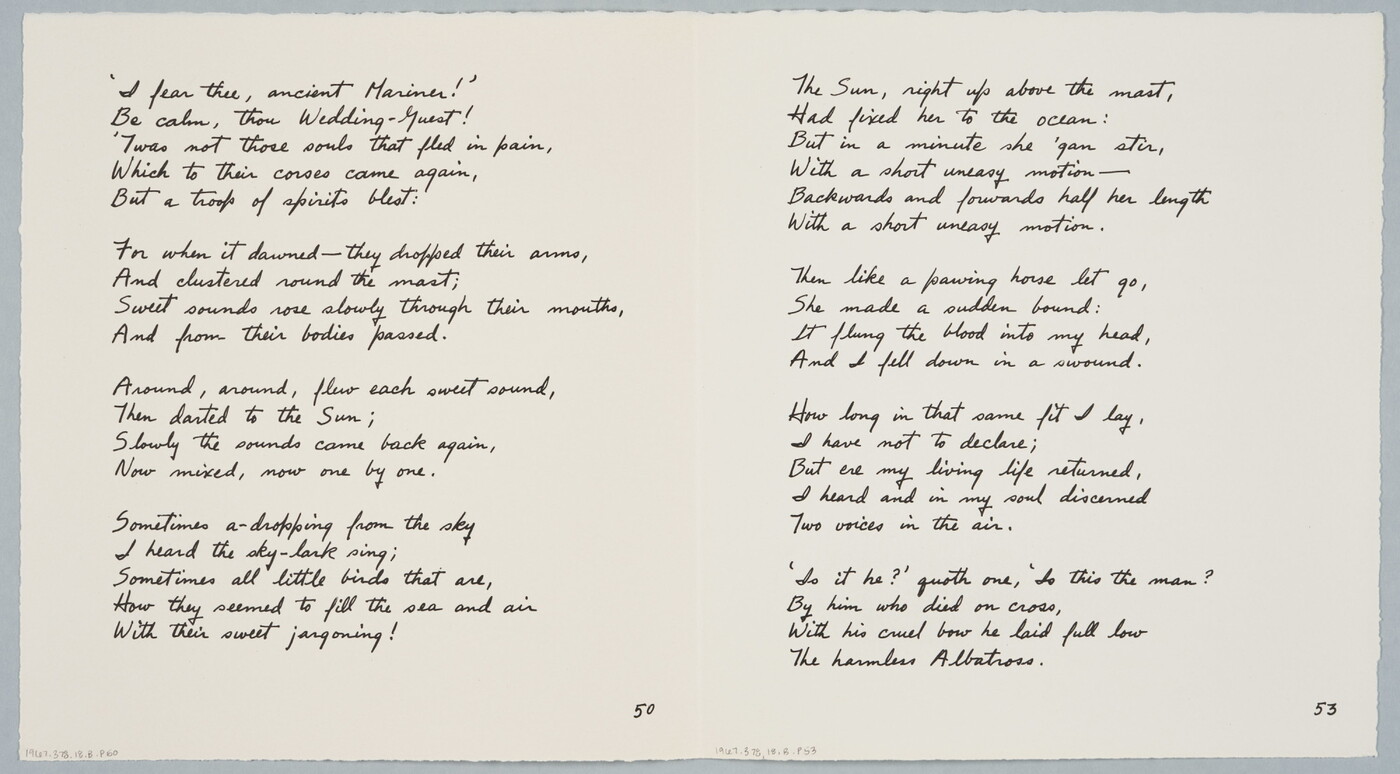 'I fear thee, ancient Mariner!'
Be calm, thou Wedding-Guest!
'Twas not those souls that fled in pain,
Which to their corses came again,
But a troop of spirits blest:

For when it dawned—they dropped their arms,
And clustered round the mast;
Sweet sounds rose slowly through their mouths,
And from their bodies passed.

Around, around, flew each sweet sound,
Then darted to the Sun;
Slowly the sounds came back again,
Now mixed, now one by one.

Sometimes a-dropping from the sky
I heard the sky-lark sing;
Sometimes all little birds that are,
How they seemed to fill the sea and air
With their sweet jargoning!

50
1967.378.18.B.P50

The Sun, right up above the mast,
Had fixed her to the ocean:
But in a minute she 'gan stir,
With a short uneasy motion—
Backwards and forwards half her length
With a short uneasy motion.

Then like a pawing horse let go,
She made a sudden bound:
It flung the blood into my head,
And I fell down in a swound.

How long in that same fit I lay,
I have not to declare;
But ere my living life returned,
I heard and in my soul discerned
Two voices in the air.

'Is it he?' quoth one, 'Is this the man?
By him who died on cross,
With his cruel bow he laid full low
The harmless Albatross.

53
1967.378.18.B.P53